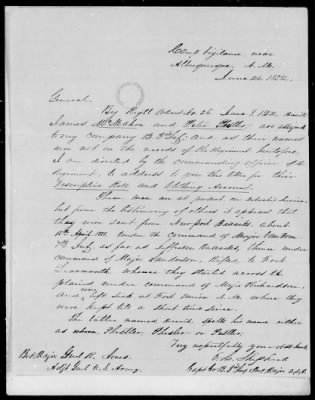 Camp Vigilance near
Albuquerque, N. M.
June 26, 1852.
General:
By Regtl Orders No. 26 June 9. 1852, recruits
James McMahon and Peter Phistler are assigned
to my Company B 3d Infy: and as their names
were not on the records of the Regiment heretofore,
I am directed by the commanding officer of the
Regiment, to address to you this letter for their
Descriptive Roll and Clothing Account.
These men are at present on detached service,
but from the testimony of others it appears that
they were sent from Newport Barracks about
under the command of Major
7th Infy as far as Jefferson Barracks, thence under
command of Major Sanderson, Rifles, to Fort
Leavenworth whence they started across the
plains under command of Major Richardson,
and were left sick at Fort Union N. M. where they
were kept till a short time since.
The latter named recruit spells his name either
as above, Phistler, or
Very respectfully your obt. Servt.
O. L. Shepherd
Capt 3d Infy Bvt Major
Adjt Genl U. S. Army